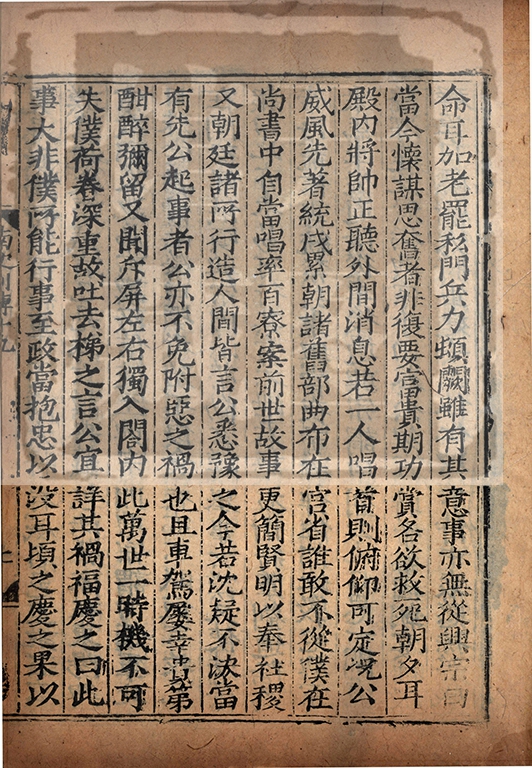 命耳加老罷私門兵力頓闕雖有其意事亦無從興宗曰
當今懷謀思奮者非復要富貴期功賞各欲救死朝夕耳
殿内將帥正聽外間消息若一人唱首則俯仰可定況公
威風先著統戎累朝諸舊部曲布在宫省誰敢不從僕在
尚書中自當唱率百寮案前世故事更簡賢明以奉社稷
又朝廷諸所行造人間皆言公悉豫之今若沈疑不決當
有先公起事者公亦不免附惡之禍也且車駕屡幸貴第
酣醉彌留又聞斥屏左右獨入閤内此萬世一時機不可
失僕荷眷深重故吐去梯之言公宜詳其禍福慶之曰此
事大非僕所能行事至政當抱忠以没耳頃之慶之果以
南史列傳十九